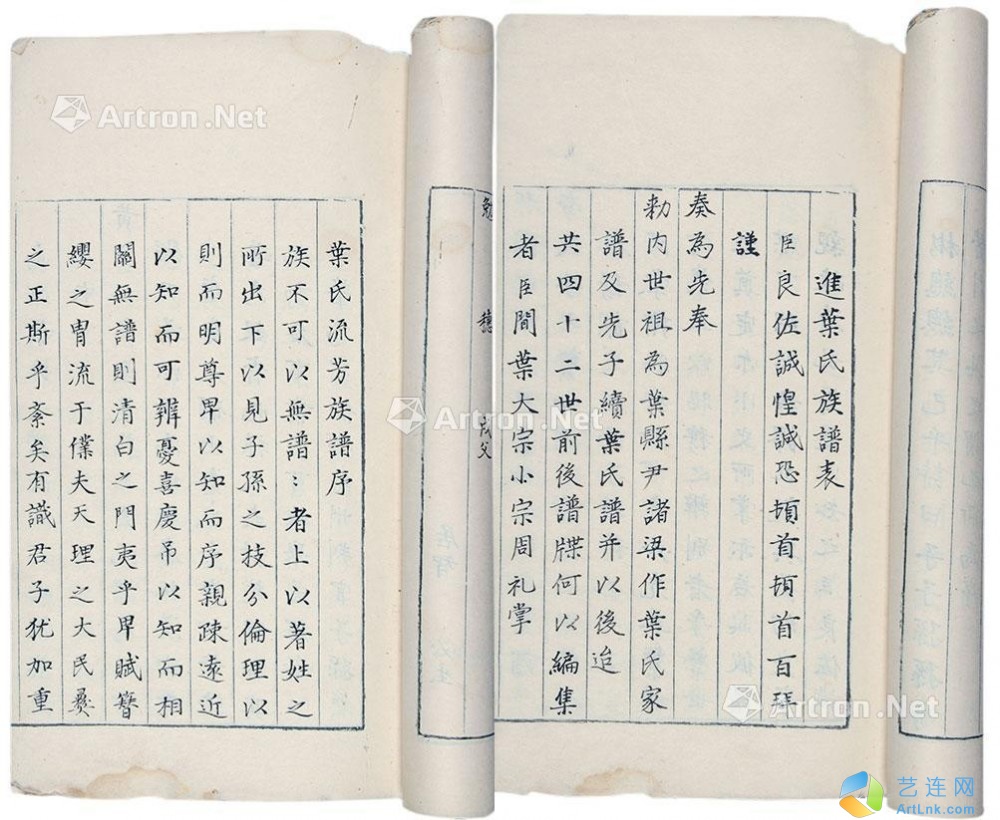 進葉氏族譜表
臣良佐誠惶誠恐頓首頓首百拜
謹
奏為先奉
勅内世祖為葉縣尹諸梁作葉氏家
譜及先子續葉氏譜并以後迨
共四十二世前後譜牒何以編集
者臣間葉大宗小宗周礼掌
葉氏流芳族譜序
族不可以無譜:者上以著姓之
所出下以見子孫之技分倫理以
則而明尊卑以知而序親疎遠近
以知而可辨憂喜慶吊以知而相
關無譜則清白之門夷乎卑賦簪
纓之冑流于僕夫天理之大民彝
之正斯乎紊矣有識君子犹加重
Artron.Net
Artron.Net
Artron.Net
Artron.Net
艺连网
ArtLnk.com